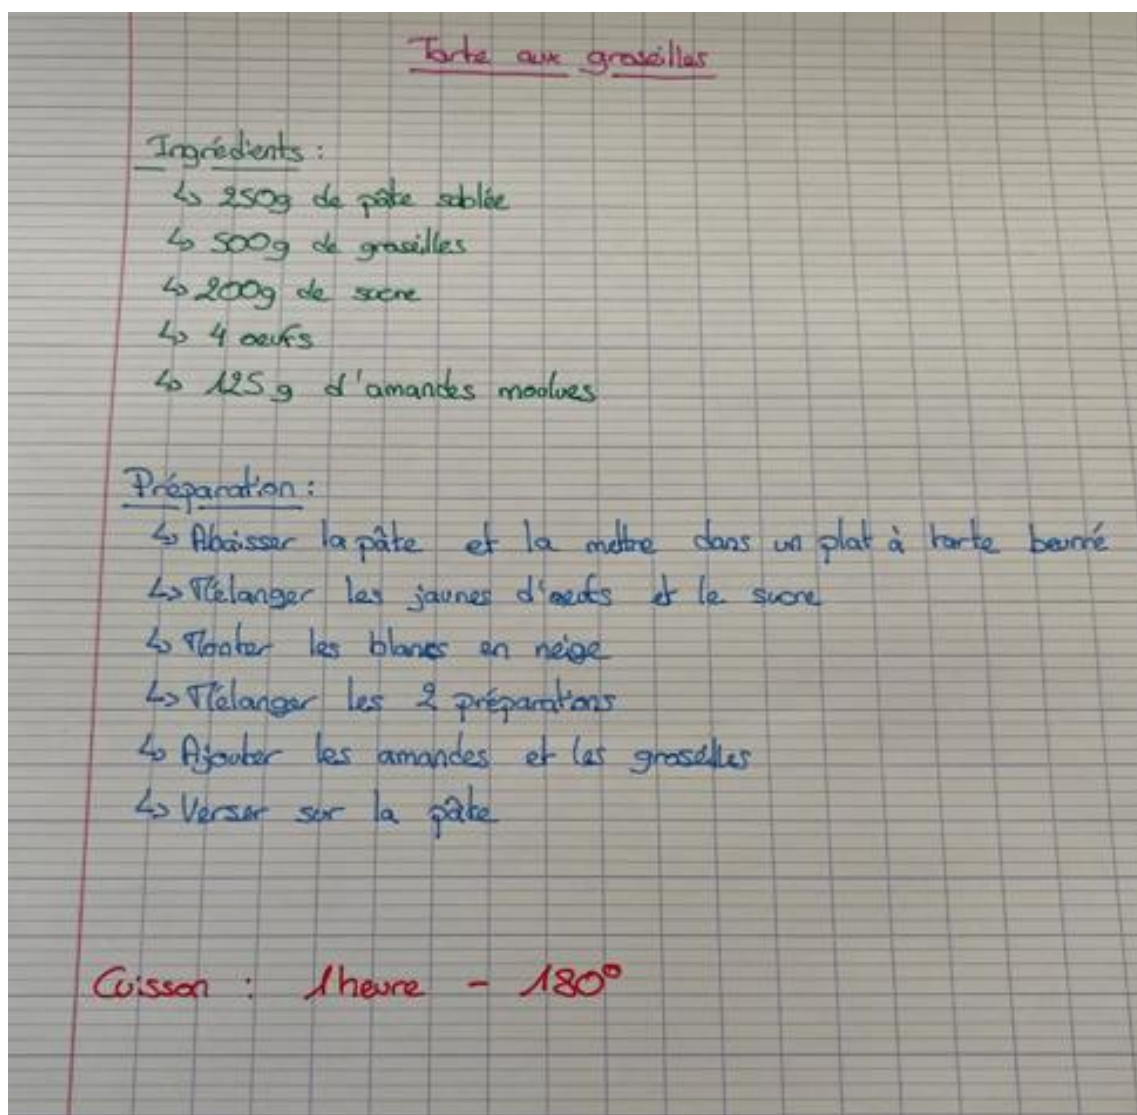 Tarte aux groseilles
Ingrédients :
↳ 250g de pâte sablée
↳ 500g de groseilles
↳ 200g de sucre
↳ 4 oeufs
↳ 125g d'amandes moulues
Préparation :
↳ Abaisser la pâte et la mettre dans un plat à tarte beurré
↳ Mélanger les jaunes d'oeufs et le sucre
↳ Monter les blancs en neige
↳ Mélanger les 2 préparations
↳ Ajouter les amandes et les groseilles
↳ Verser sur la pâte
Cuisson : 1heure - 180°